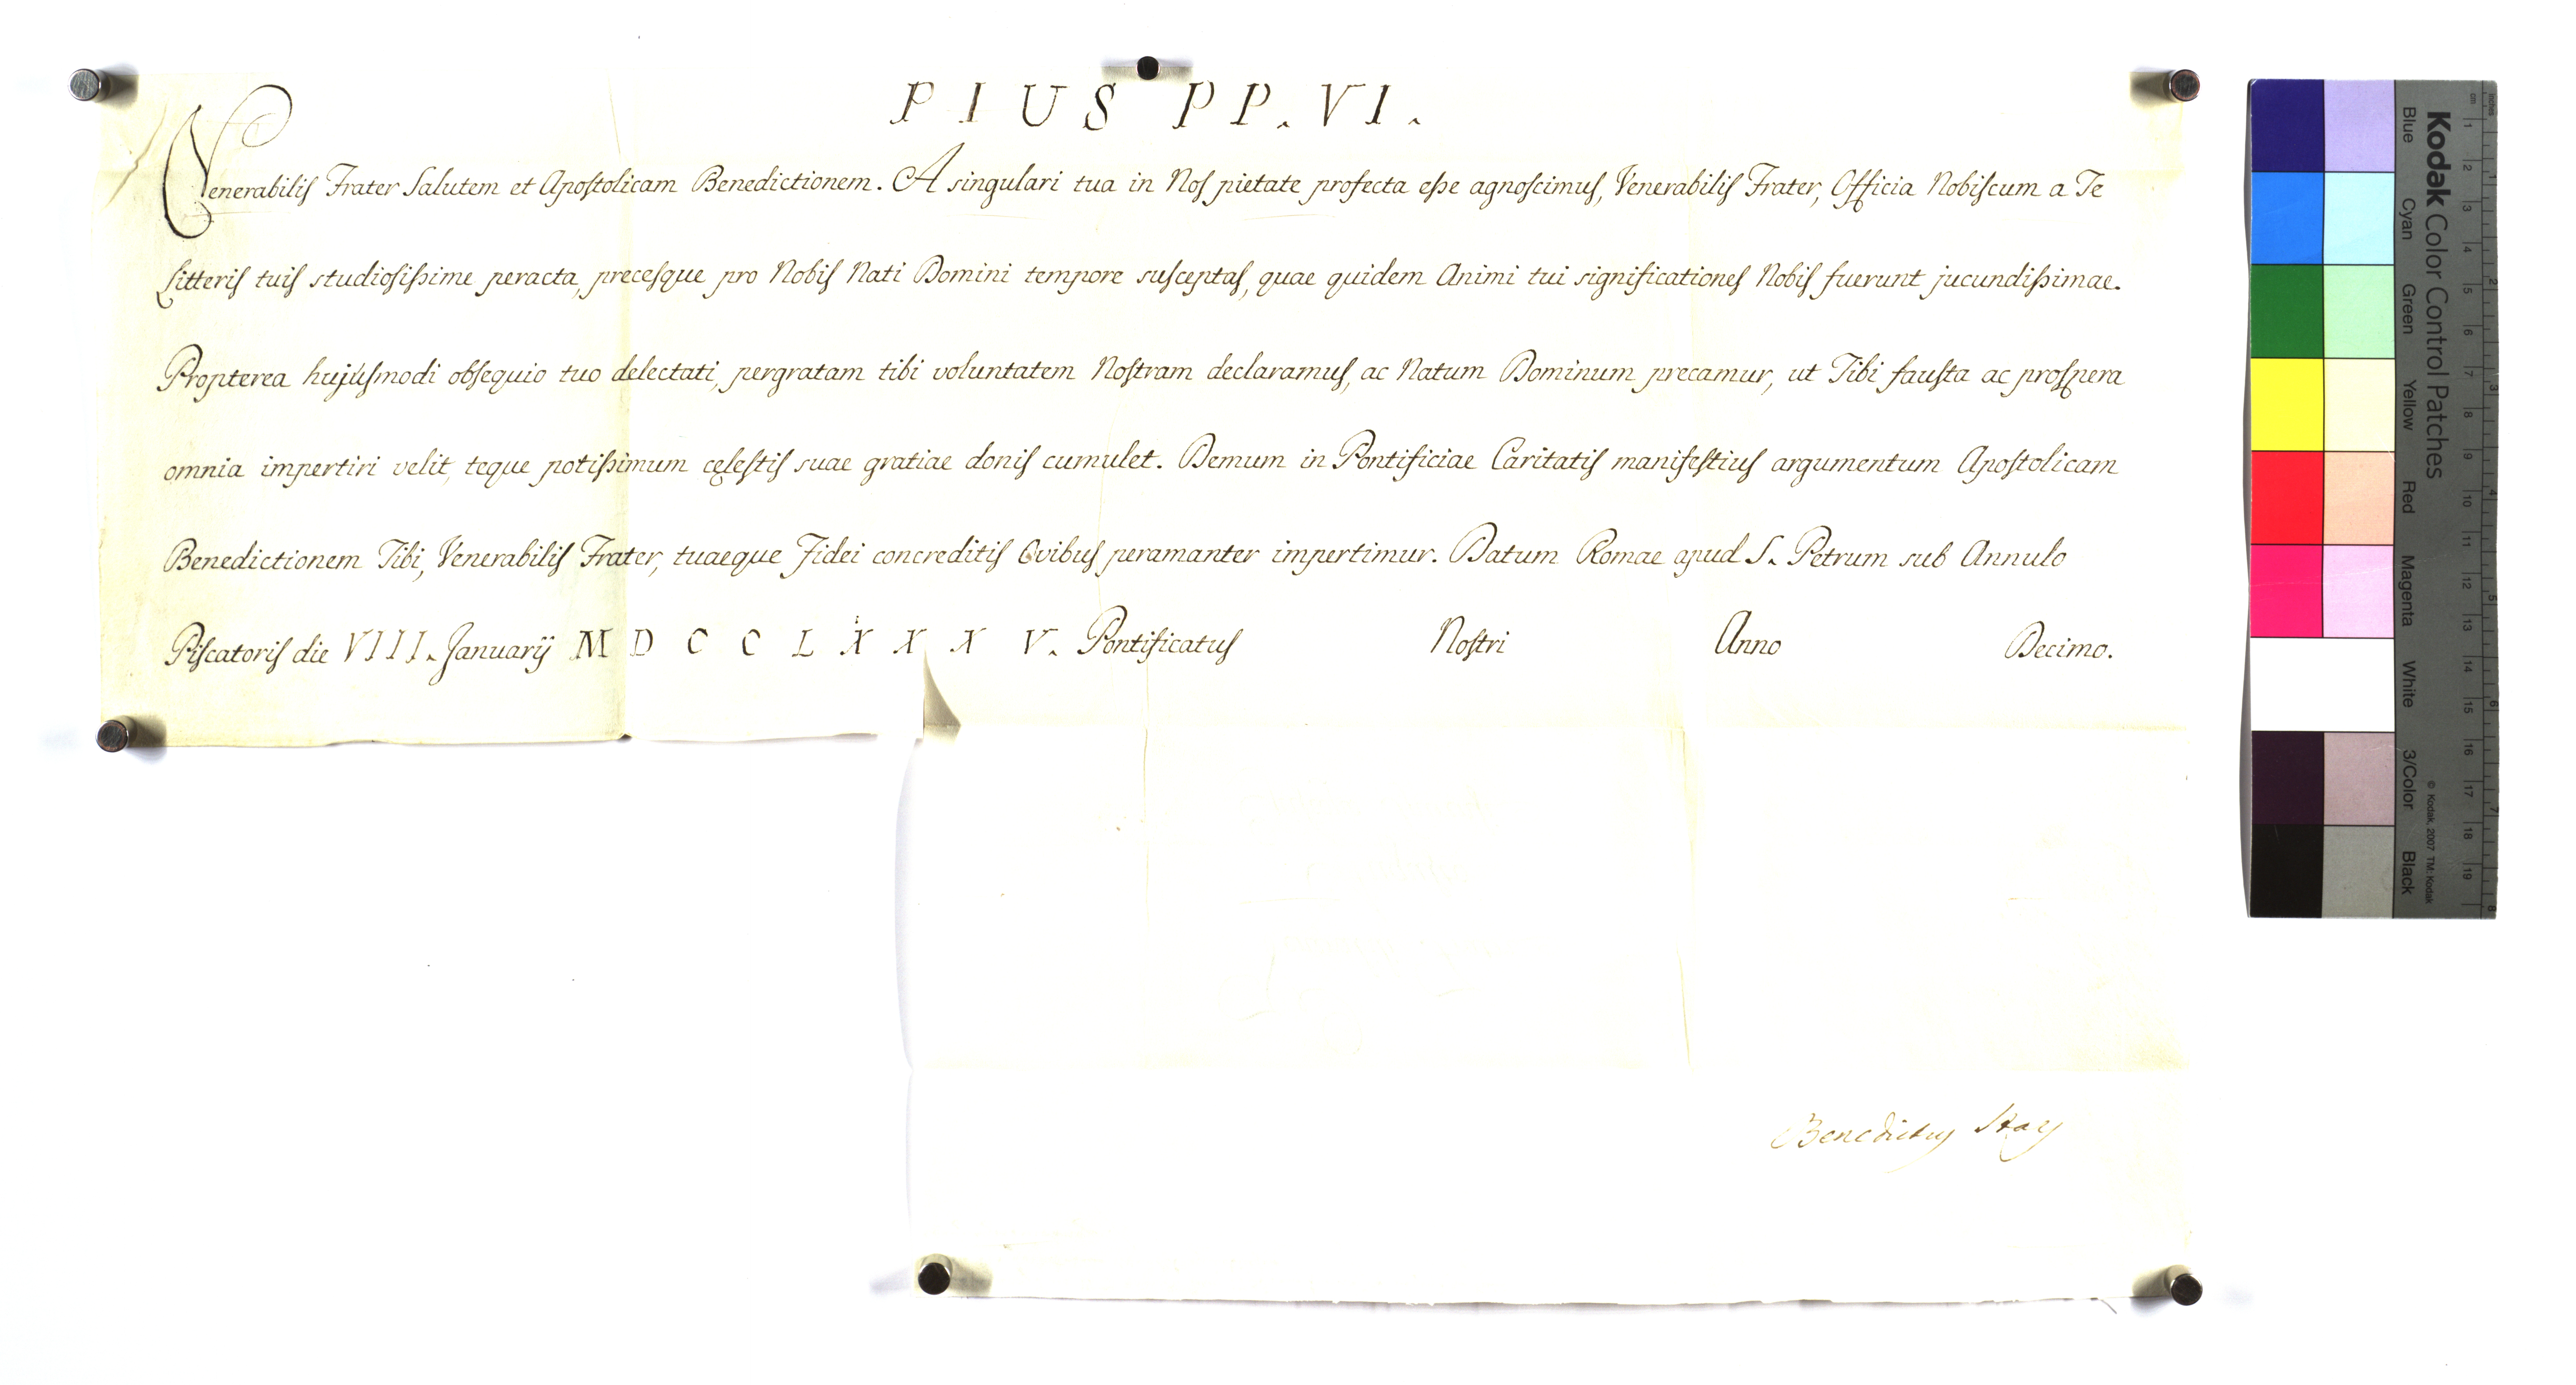 PIUS PP. VI.
Venerabilis Frater Salutem et Apostolicam Benedictionem. A singulari tua in Nos pietate profecta esse agnoscimus, Venerabilis Frater, Officia Nobiscum a Te
Litteris tuis studiosissime peracta, precesque pro Nobis Nati Domini tempore susceptas, quae quidem Animi tui significationes Nobis fuerunt jucundissimae.
Propterea hujusmodi obsequio tuo delectati, pergratam tibi voluntatem Nostram declaramus, ac Natum Dominum precamur, ut Tibi fausta ac prospera
omnia impertiri velit, teque potissimum cęlestis suae gratiae donis cumulet. Demum in Pontificiae Caritatis manifestius argumentum Apostolicam
Benedictionem Tibi, Venerabilis Frater, tuaeque Fidei concreditis Ovibus peramanter impertimur. Datum Romae apud S. Petrum sub Annulo
Piscatoris die VIII. Januarij MDCCLXXXV. Pontificatus Nostri Anno Decimo.
Benedictus Stay
Kodak Color Control Patches
Blue Cyan Green Yellow Red Magenta White 3/Color Black
© Kodak, 2007 TM: Kodak
cm 1 2 3 4 5 6 7 8 9 10 11 12 13 14 15 16 17 18 19
inches 1 2 3 4 5 6 7 8